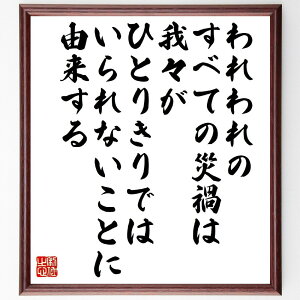 われわれの
すべての災禍は
我々が
ひとりきりでは
いられないことに
由来する